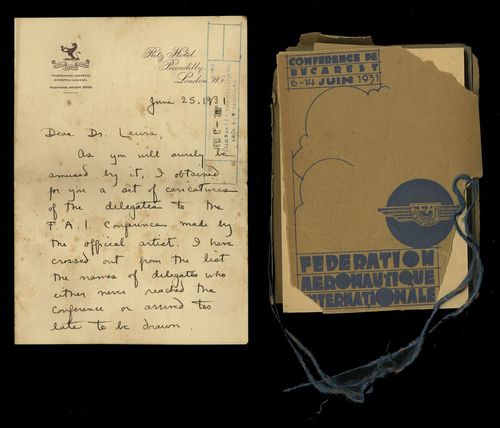 Ritz Hotel.
Piccadilly.
London. W.1.
June 25, 1931
Dear Dr. Lewis,
As you will surely be
amused by it, I obtained
for you a set of caricatures
of the delegates to the
F.A.I. Conference made by
the official artist. I have
crossed out from the list
the names of delegates who
either never reached the
conference or arrived too
late to be drawn.
CONFÉRENCE DE
BUCAREST
6-14 JUIN 1931
FEDERATION
AERONAUTIQUE
INTERNATIONALE